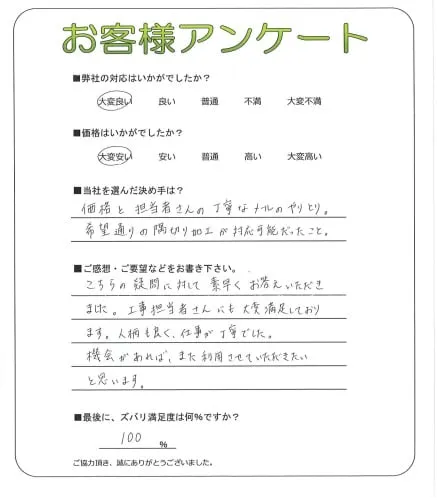 お客様アンケート
■弊社の対応はいかがでしたか？
大変良い 良い 普通 不満 大変不満
■価格はいかがでしたか？
大変安い 安い 普通 高い 大変高い
■当社を選んだ決め手は？
価格と担当者さんの丁寧なメールのやりとり。
希望通りの隅切り加工が対応可能だったこと。
■ご感想・ご要望などをお書き下さい。
こちらの疑問に対して素早くお答えいただき
ました。工事担当者さんにも大変満足しており
ます。人柄も良く、仕事が丁寧でした。
機会があれば、また利用させていただきたい
と思います。
■最後に、ズバリ満足度は何％ですか？
100 %
ご協力頂き、誠にありがとうございました。